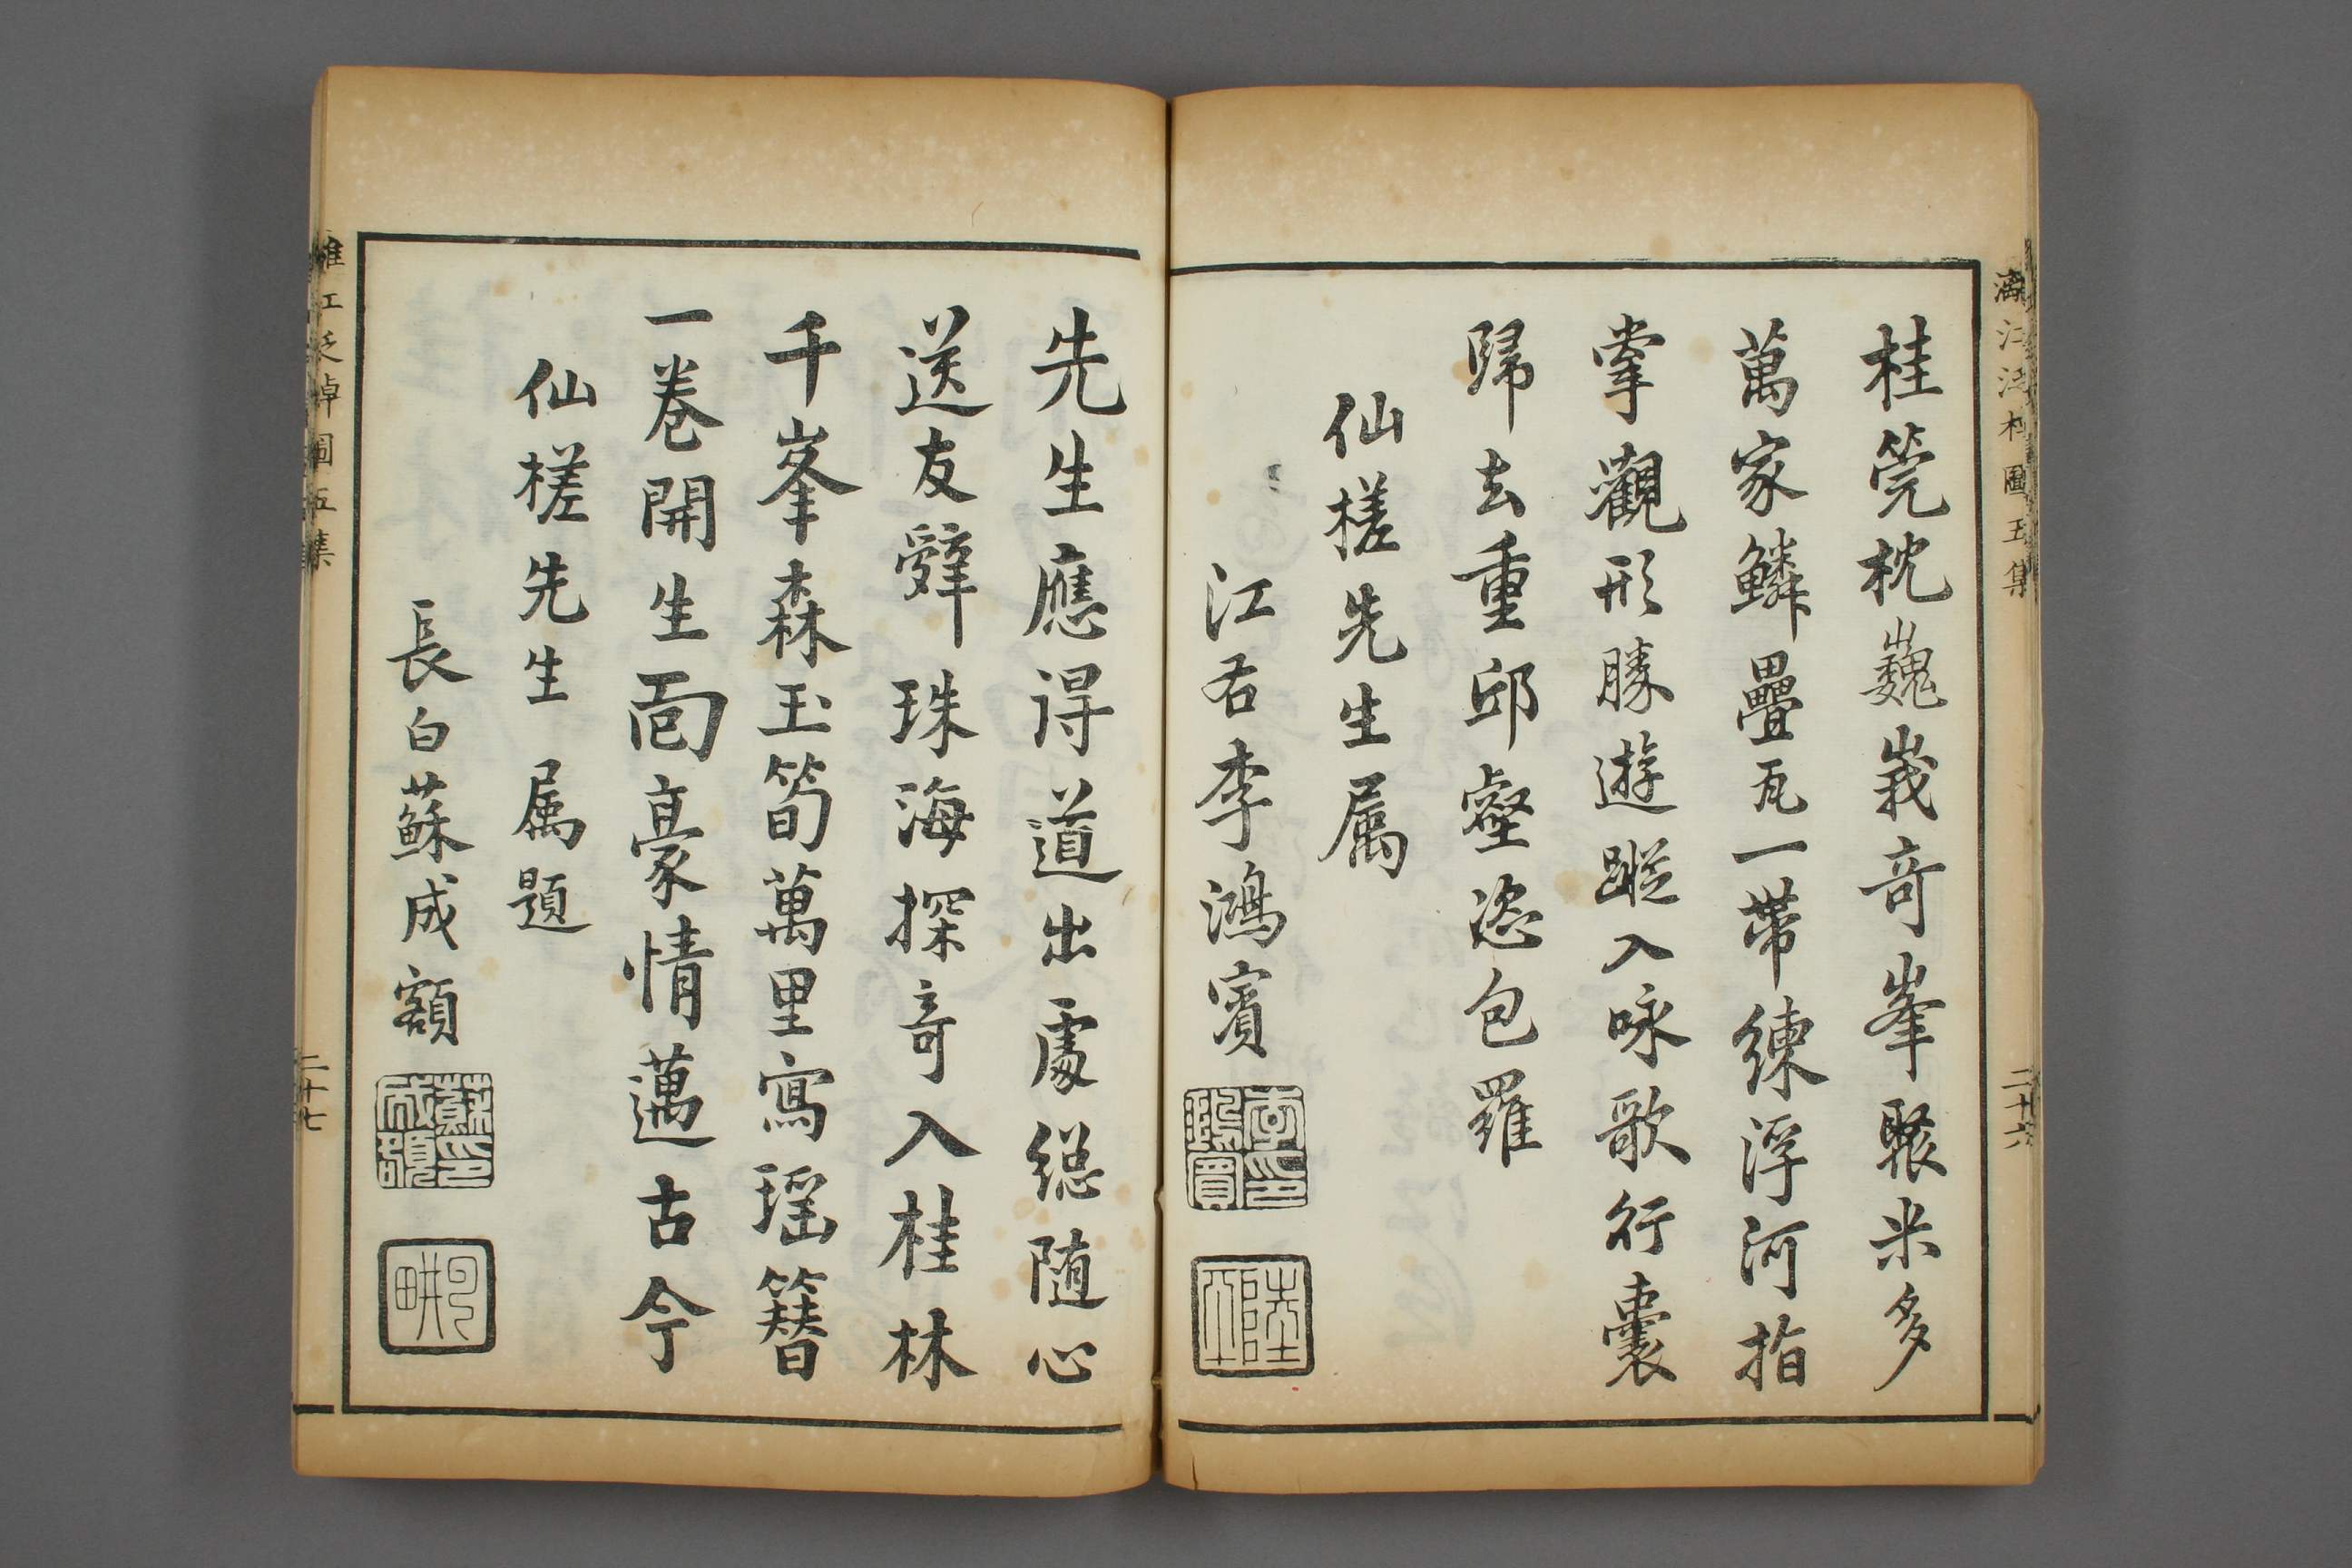 漓江泛棹圖五集
二十六
桂筦枕巍峩奇峯聚米多
萬家鱗疊瓦一帶練浮河指
掌觀形勝遊蹤入咏歌行囊
歸去重邱壑恣包羅
仙槎先生属
江右李鴻賓
李印鴻賓
先生應得道出處總随心
送友辤珠海探奇入桂林
千峯森玉筍萬里寫瑶簪
一卷開生面豪情邁古今
仙槎先生 属題
長白蘇成額
蘇印成額
漓江泛棹圖五集
二十七